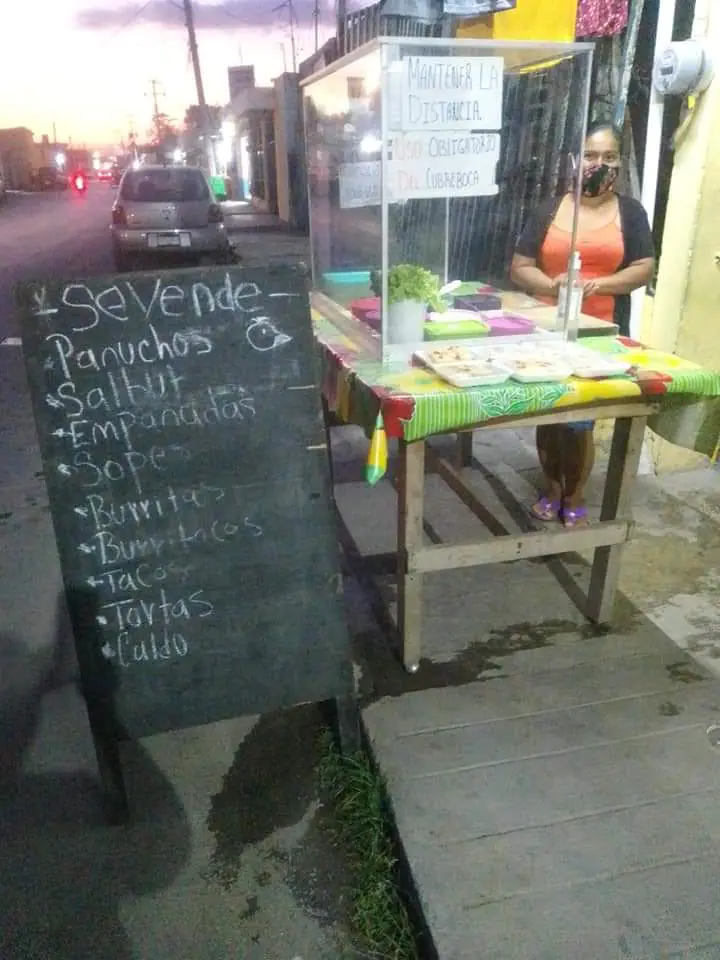 - Se Vende -
Panuchos
Salbut
Empanadas
Sopes
Burritas
Burritacos
Tacos
Tortas
Caldo
MANTENER LA
DISTANCIA
USO OBLIGATORIO
DEL CUBREBOCA